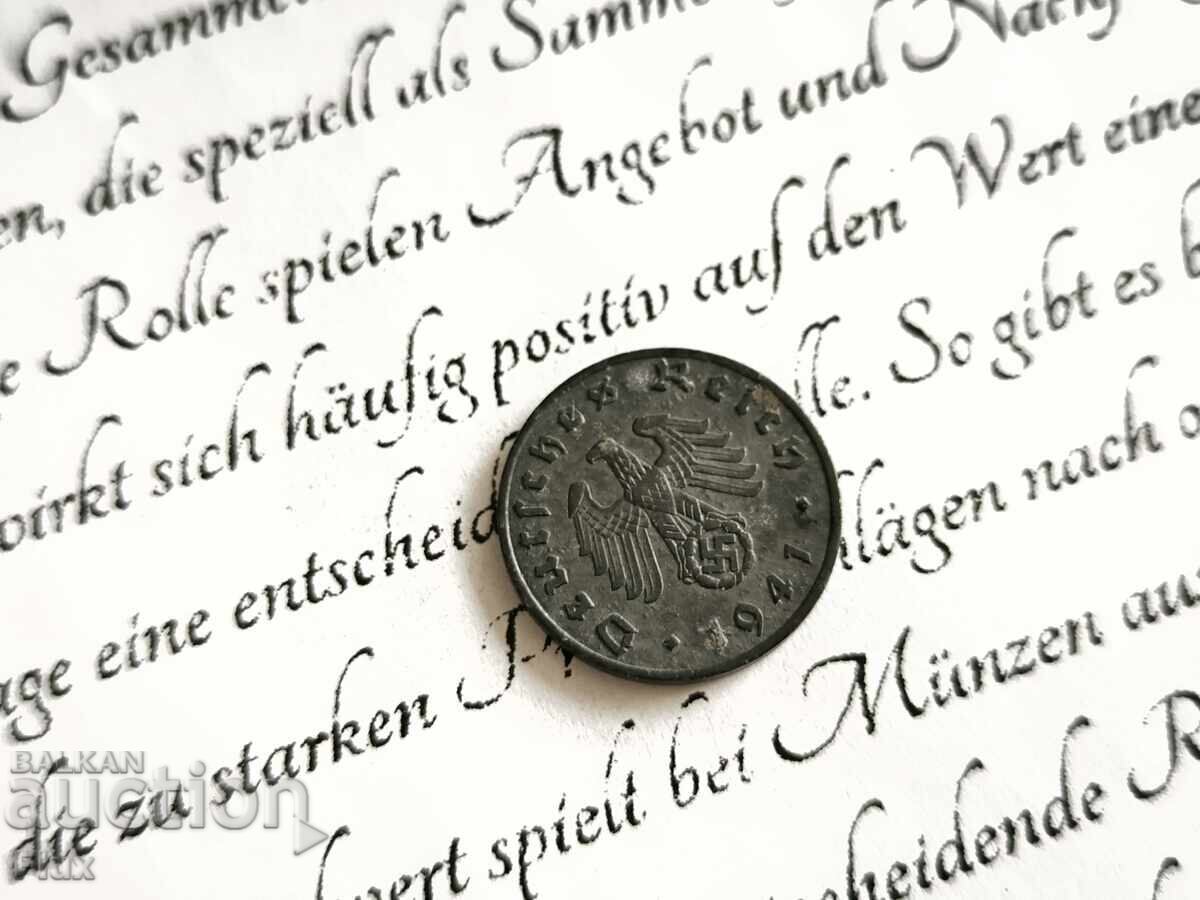 Gesamme
en, die speziell als Samm
e Rolle spielen Angebot und Nach
wirkt sich häufig positiv auf den Wert eine
age eine entscheid lle. So gibt es b
die zu starken lägen nach o
wert spielt bei Münzen aus
cheidende R
Deutsches Reich
1941
BALKAN
auction
Flux